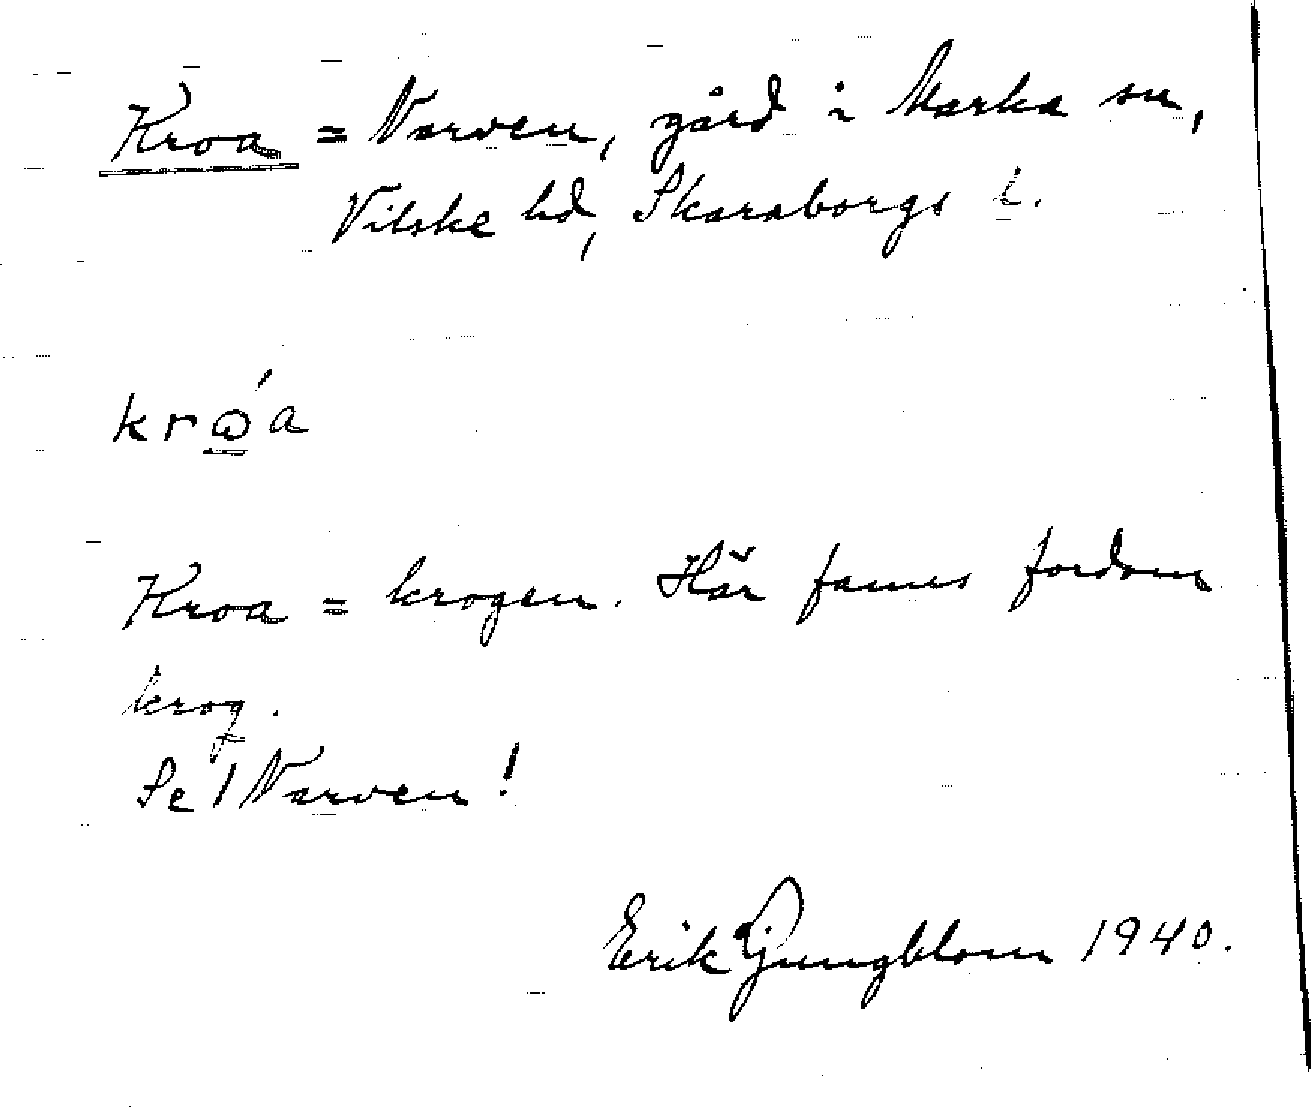 Kroa = Narven, gård i Marka sn,
Vilske hd, Skaraborgs l.
krώa
Kroa = krogen. Här fanns fordom
krog.
Se Narven!
Erik Ljungblom 1940.